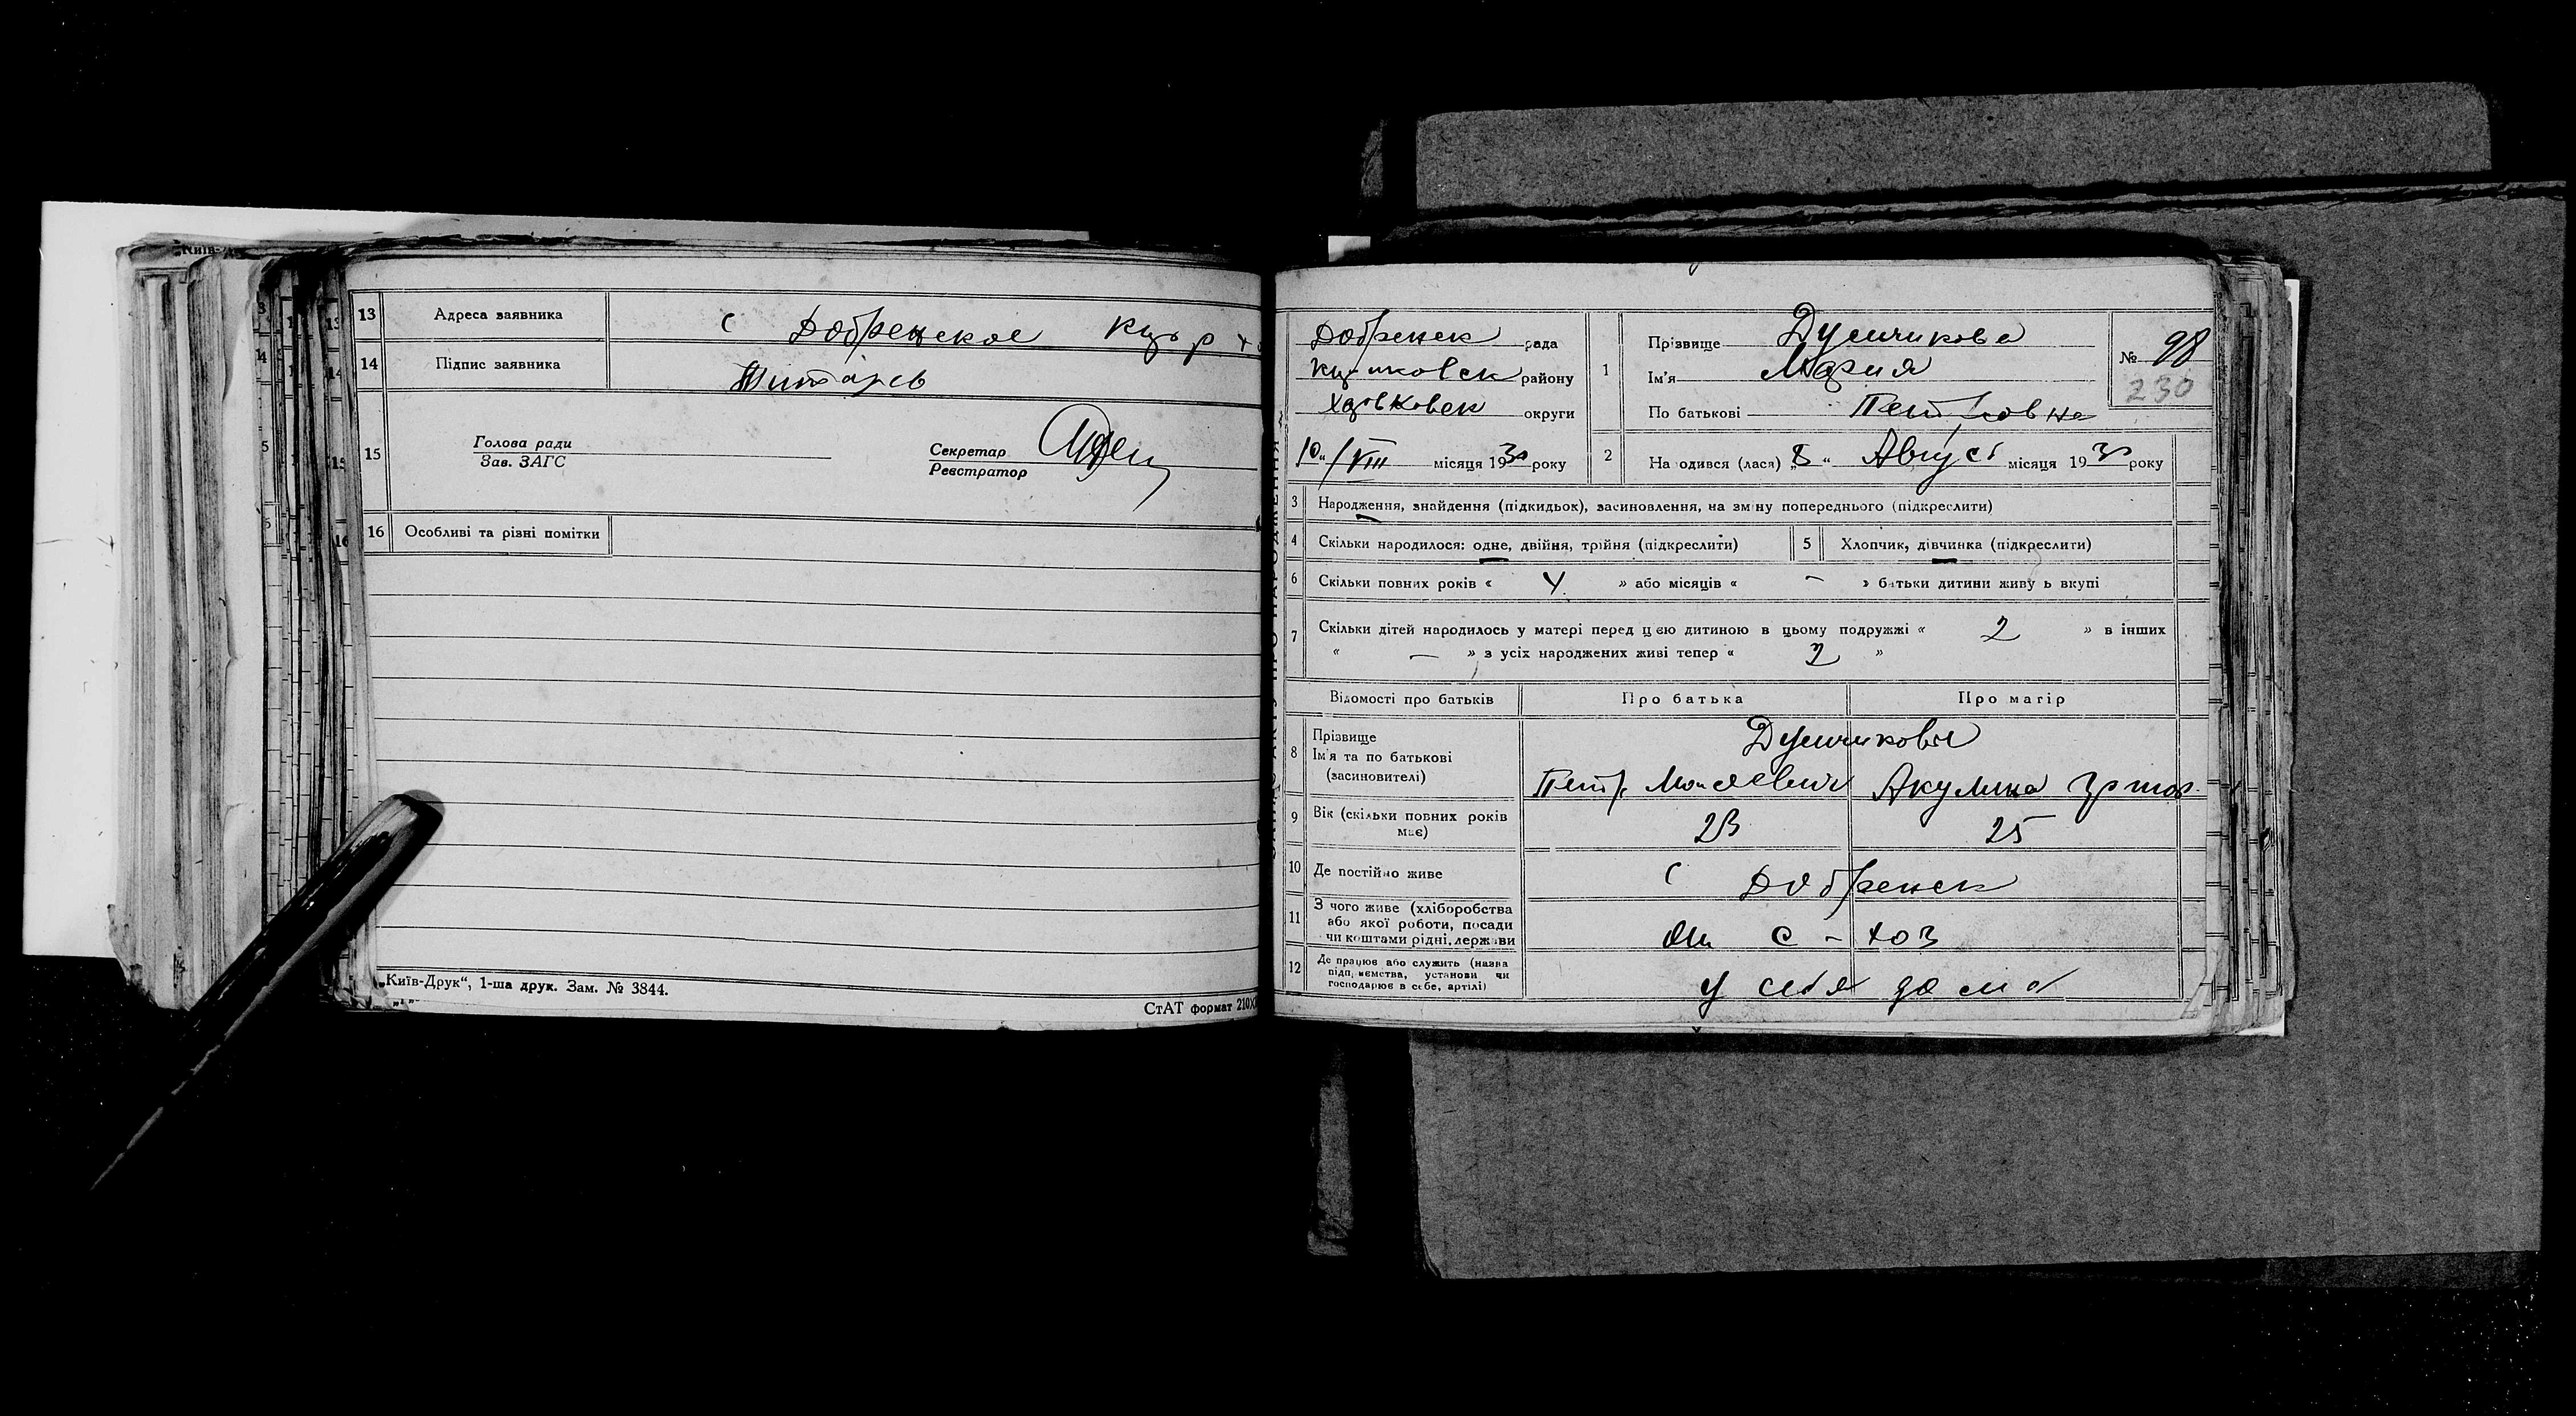 13 Адреса заявника с Добренское
14 Підпис заявника
15 Голова ради
Зав. ЗАГС
Секретар
Реєстратор
16 Особливі та різні помітки
„Київ-Друк“, 1-ша друк. Зам. № 3844.
СтАТ формат
Добренск рада
району
округи
10 „ VIII місяця 1930 року
1 Прізвище
Ім'я Мария
По батькові Петровна
№ 98
230
2 На одився (лася) „8 “ Август місяця 1930 року
3 Народження, знайдення (підкидьок), засиновлення, на зміну попереднього (підкреслити)
4 Скільки народилося: одне, двійня, трійня (підкреслити)
5 Хлопчик, дівчинка (підкреслити)
6 Скільки повних років « 4 » або місяців « – » батьки дитини живу ь вкупі
7 Скільки дітей народилось у матері перед цією дитиною в цьому подружжі « 2 » в інших
« — » з усіх народжених живі тепер « »
Відомості про батьків Про батька Про матір
8 Прізвище
Ім'я та по батькові
(засиновителі)
Петр Акулина
9 Вік (скільки повних років має) 23 25
10 Де постійно живе с Добренск
11 З чого живе (хліборобства
або якої роботи, посади
чи коштами рідні, держави
от с-хоз
12 Де працює або служить (назва
підп, ємства, установи чи
господарює в себе, артілі)
у себя дома